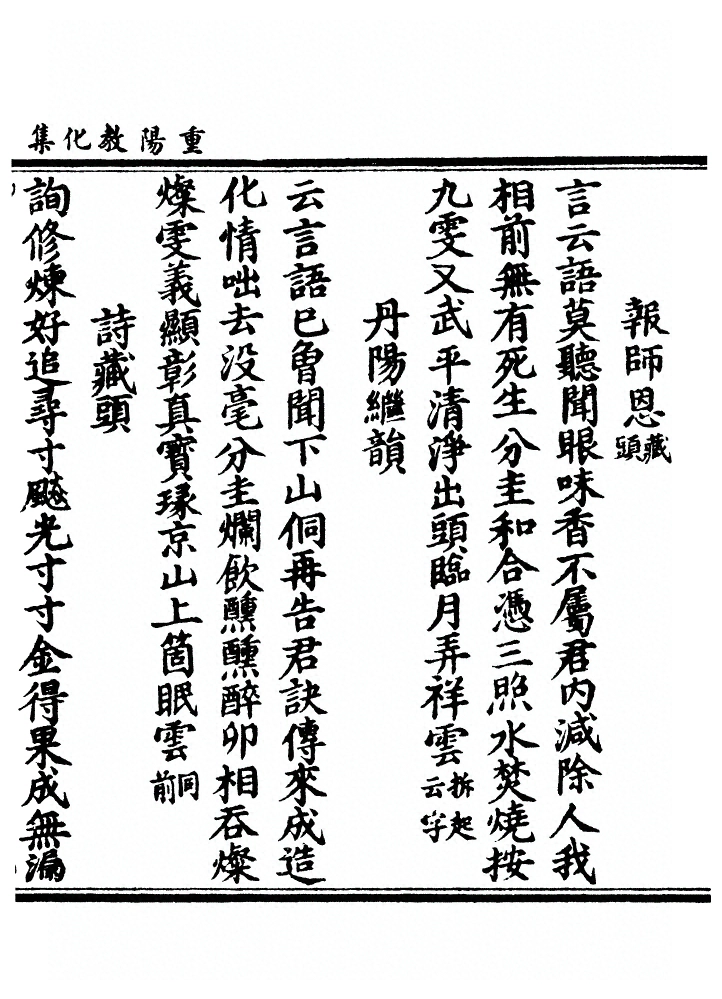 重陽教化集
報師恩藏頭
言云語莫聽聞眼味香不屬君內減除人我
相前無有死生分圭和合憑三照水焚燒按
九雯又武平清淨出頭臨月弄祥雲拆起云字
丹陽繼韻
云言語已魯聞下山侗再告君訣傳來成造
化情咄去没毫分圭爛飲醺醺醉卯相吞燦
燦雯義顯彰真寶琭京山上箇眠雲同前
詩藏頭
詢修煉好追尋寸飈光寸寸金得果成無漏